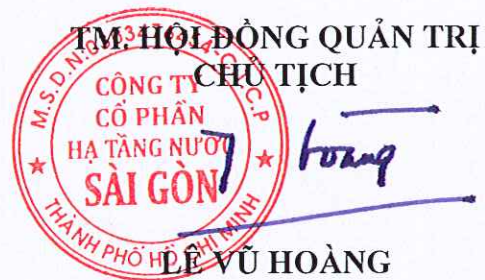 TM. HỘI ĐỒNG QUẢN TRỊ
CHỦ TỊCH
CÔNG TY
CỔ PHẦN
HẠ TẦNG NƯỚC
SÀI GÒN
THÀNH PHỐ HỒ CHÍ MINH
LÊ VŨ HOÀNG